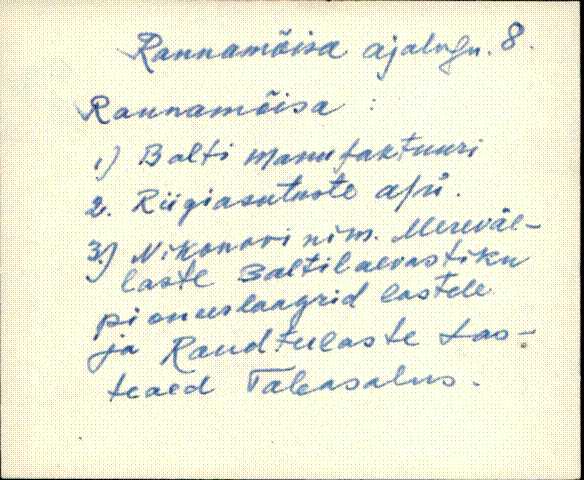 Rannamõisa ajalugu. 8.
Rannamõisa :
1) Balti Manufaktuuri
2. Riigiasutuste a/ü.
3.) Nikonovi nim. Merevä-
laste Baltilaevastiku
pioneerlaagrid lastele
ja Raudteelaste Las-
teaed Tabasalus.